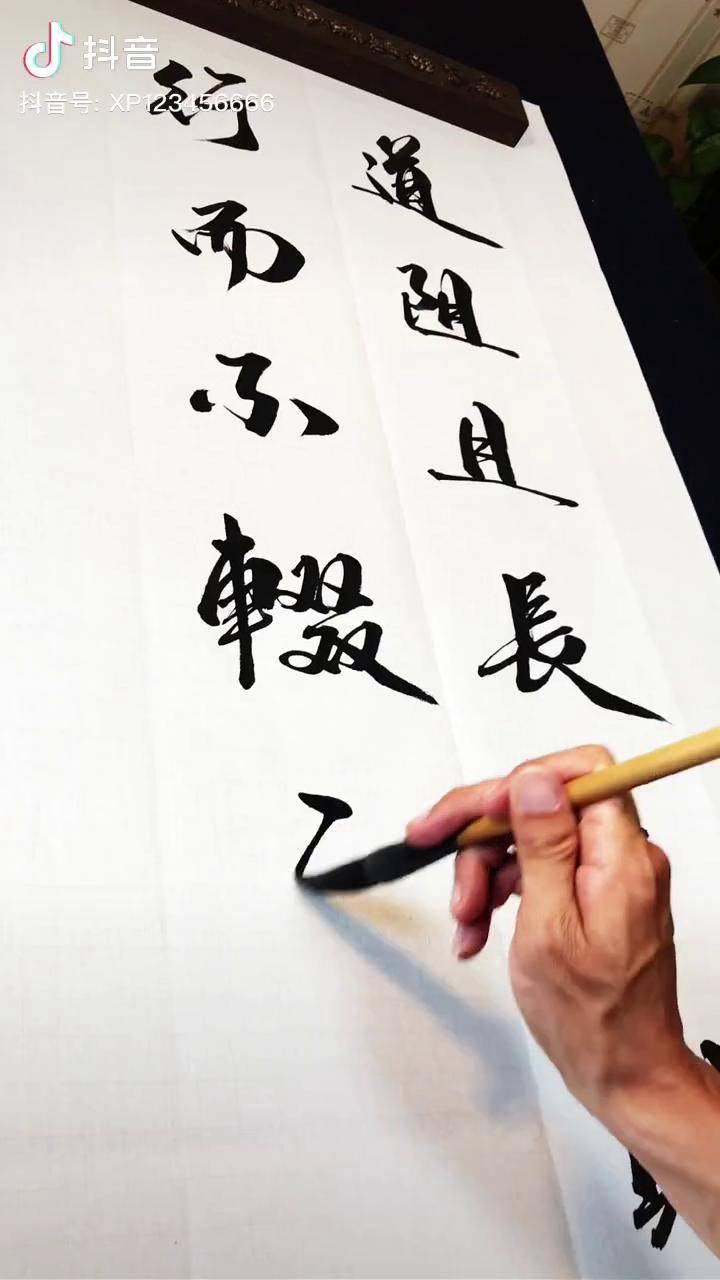 抖音
抖音号: XP123456666
道阻且長
行而不輟